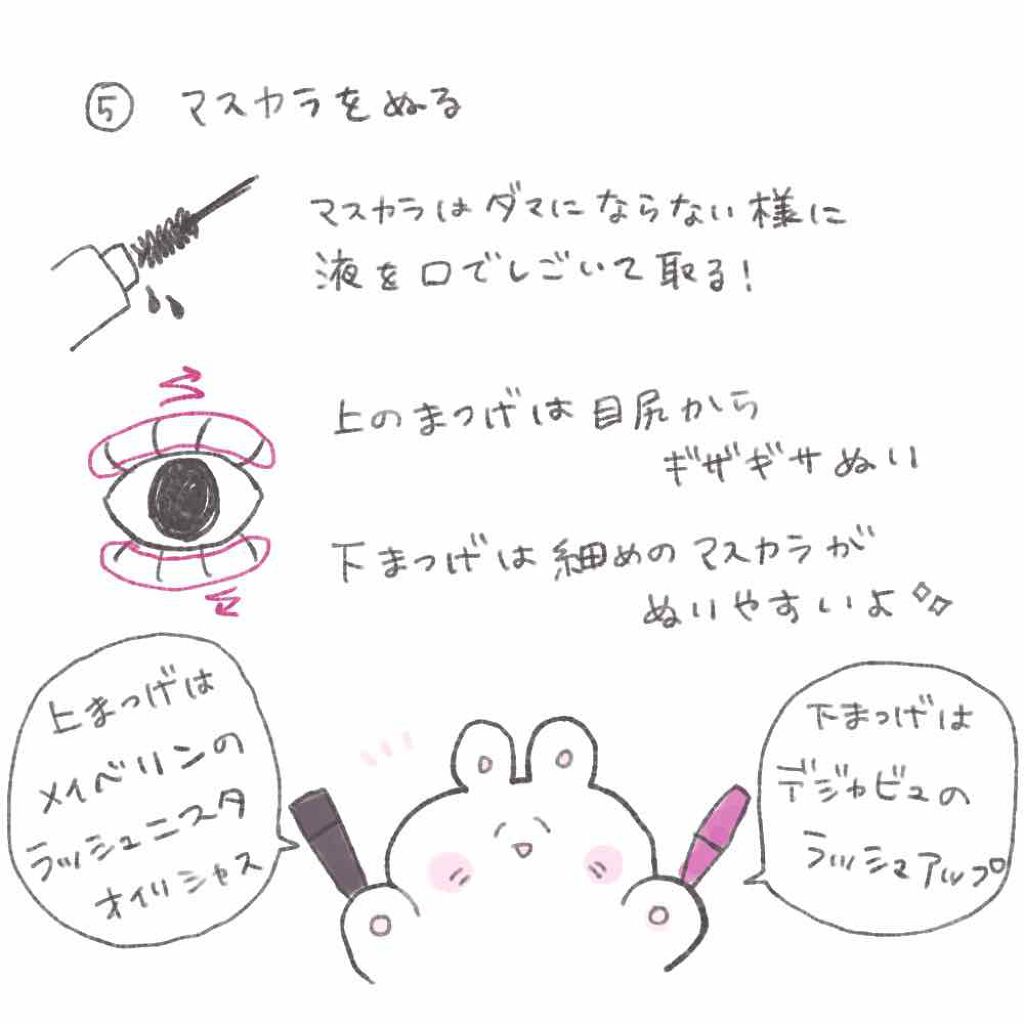 ⑤ マスカラをぬる
マスカラはダマにならない様に
液を口でしごいて取る!
上のまつげは目尻から
ギザギザぬい
下まつげは細めのマスカラが
ぬりやすいよ
上まつげは
メイベリンの
ラッシュニスタ
オイルシャス
下まつげは
デジャビュの
ラッシュアップ